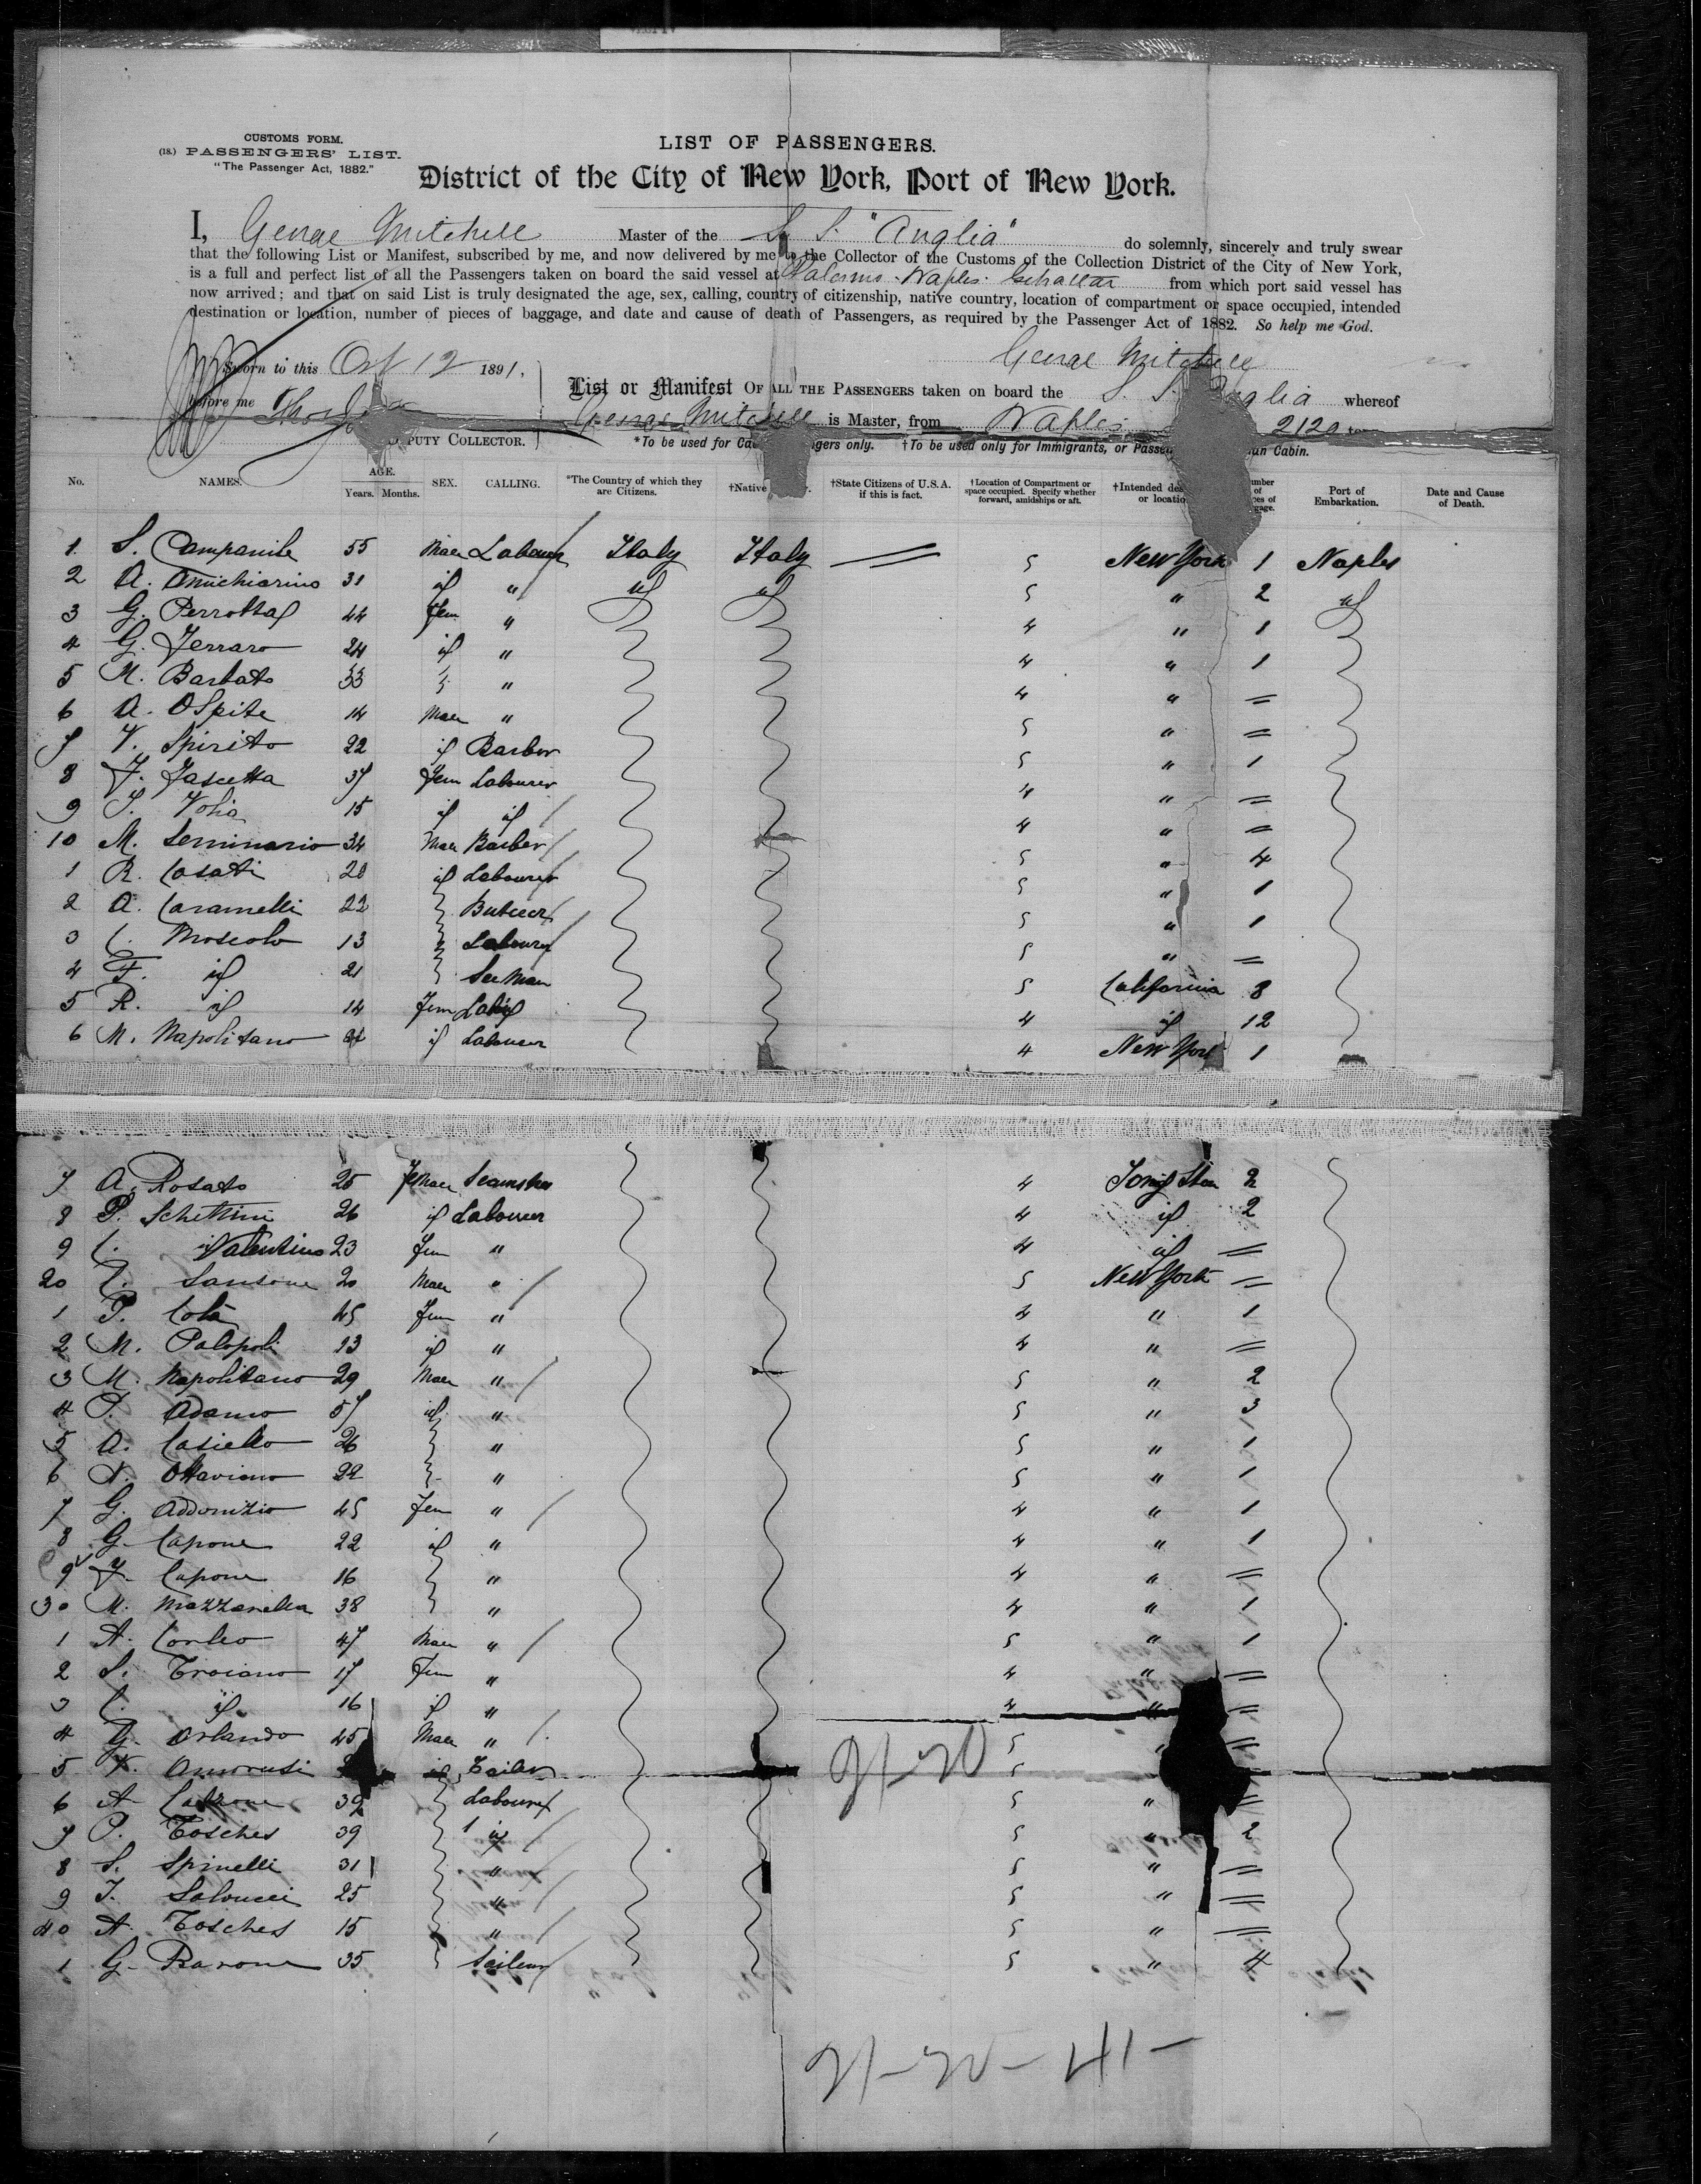 CUSTOMS FORM.
(18.) PASSENGERS' LIST.
"The Passenger Act, 1882."
LIST OF PASSENGERS.
District of the City of New York, Port of New York.
I, George Mitchell Master of the S. S. "Anglia" do solemnly, sincerely and truly swear
that the following List or Manifest, subscribed by me, and now delivered by me to the Collector of the Customs of the Collection District of the City of New York,
is a full and perfect list of all the Passengers taken on board the said vessel at Palermo. Naples. from which port said vessel has
now arrived; and that on said List is truly designated the age, sex, calling, country of citizenship, native country, location of compartment or space occupied, intended
destination or location, number of pieces of baggage, and date and cause of death of Passengers, as required by the Passenger Act of 1882. So help me God.
George Mitchell
Sworn to this Oct 12 1891.
before me
DEPUTY COLLECTOR.
List or Manifest OF ALL THE PASSENGERS taken on board the S. S. Anglia whereof
George Mitchell is Master, from Naples 2120
*To be used for only. †To be used only for Immigrants, or Cabin.
No. NAMES. AGE. Years. Months. SEX. CALLING. *The Country of which they are Citizens. †Native †State Citizens of U.S.A. if this is fact. †Location of Compartment or space occupied. Specify whether forward, amidships or aft. †Intended or of Port of Embarkation. Date and Cause of Death.
1 S. Campanile 55 Male Labourer Italy Italy 5 New York 1 Naples
2 A. 31 " 5 " 2
3 G. Perrotta 44 Fem " 4 " 1
4 G. Ferraro 24 " 4 " 1
5 M. Barbato 33 " 4 " =
6 A. OSpite 14 Male " 5 " =
7 V. Spirito 22 Barber 5 " 1
8 F. Fascetta 37 Fem Labourer 4 " =
9 15 4 " =
10 M. Seminario 34 Male Barber 5 " 4
1 R. Casati 20 Labourer 5 " 1
2 A. Caramelli 22 5 " 1
3 C. Moscolo 13 Labourer 5 " =
4 F. 21 5 California 8
5 R. 14 Fem 4 12
6 M. Napolitano Labourer 4 New York 1
7 A. Rosato 25 4 2
8 P. Schettini 26 Labourer 4 2
9 C. Valentino 23 Fem " 4 =
20 Sansone 20 Male " 5 New York =
1 Cola 45 Fem " 4 " 1
2 M. Palopoli " 4 " =
3 M. Napolitano 29 Male " 5 " 2
4 P. Adamo 57 " 5 " 3
5 A. Casiello 26 " 5 " 1
6 Ottaviano 22 " 5 " 1
7 G. Addonizio 45 Fem " 4 " 1
8 G. Capone 22 " 4 " 1
9 F. Capone 16 " 4 " =
30 M. Mazzarella 38 " 4 " 1
1 A. Corleo 47 Male " 5 " 1
2 S. Troiano 17 Fem " 4 " =
3 C. 16 " 4 " =
4 G. Orlando 45 Male " 5 " =
5 Tailor 5
6 A. 39 Labourer 5 " =
7 P. Tosches 39 5 " 2
8 S. Spinelli 31 " 5 " =
9 25 " 5 " =
40 A. Tosches 15 " 5 " =
1 G. Barone 35 5 " 4
21-20
21-20-41-